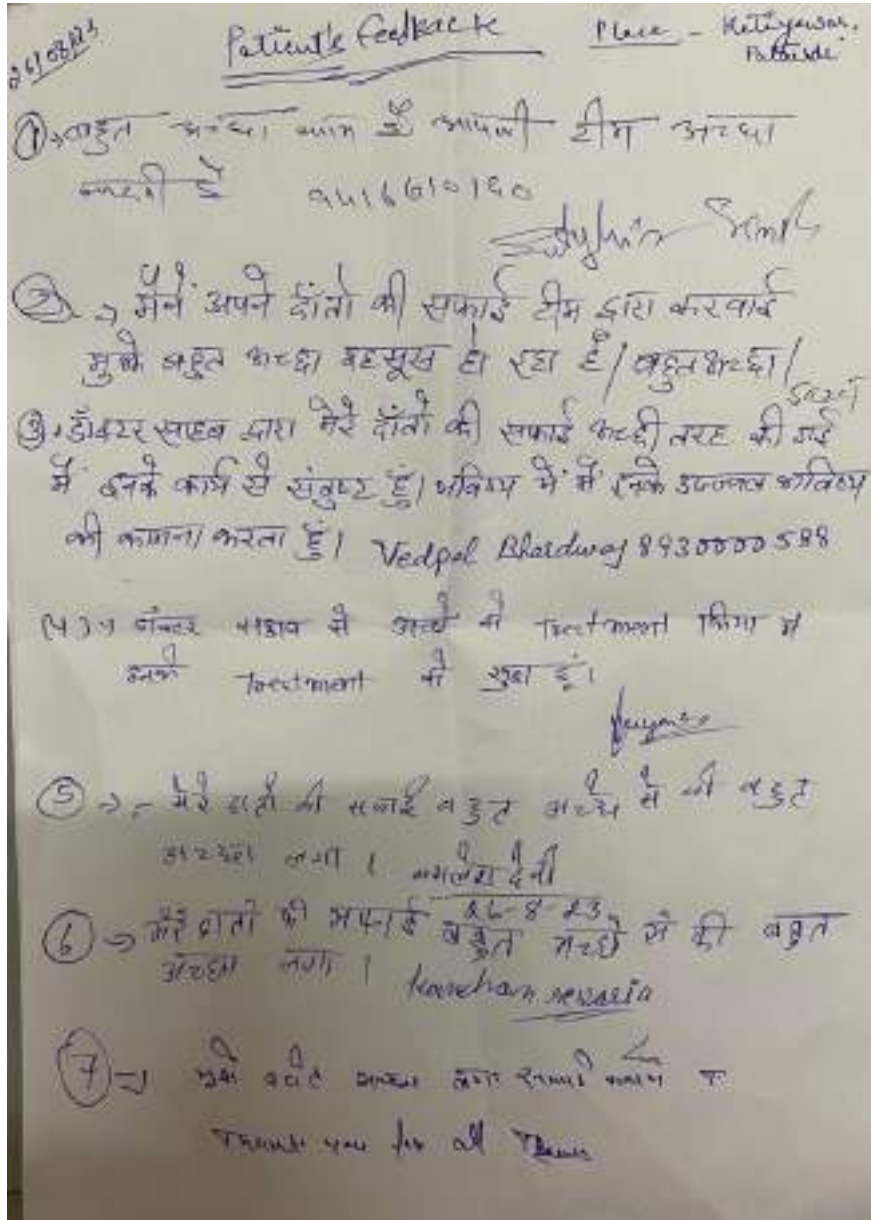 26/08/23 Patient's Feedback Place -
① → बहुत अच्छा काम है आपकी टीम अच्छा
करती है 9416610160
Singh
② → मैंने अपने दाँतो की सफाई टीम द्वारा करवाई
मुझे बहुत अच्छा महसूस हो रहा है। बहुत अच्छा।
③ → डॉक्टर साहब द्वारा मेरे दाँतो की सफाई अच्छी तरह की गई
मैं इनके कार्य से संतुष्ट हूं। भविष्य में मैं इनके उज्जवल भविष्य
की कामना करता हूं। Vedpal Bhardwaj 8930000588
(4) → डॉक्टर साहब ने अच्छे से Treatment किया मैं
इनके Treatment से खुश हूं।
⑤ → - मेरे दातो की सफाई बहुत अच्छे से की बहुत
अच्छा लगा । कमलेश देवी
26-8-23
⑥ → मेरे दातो की सफाई बहुत अच्छे से की बहुत
अच्छा लगा । Kanchan
⑦ → मुझे अच्छा लगा
Thank you for all